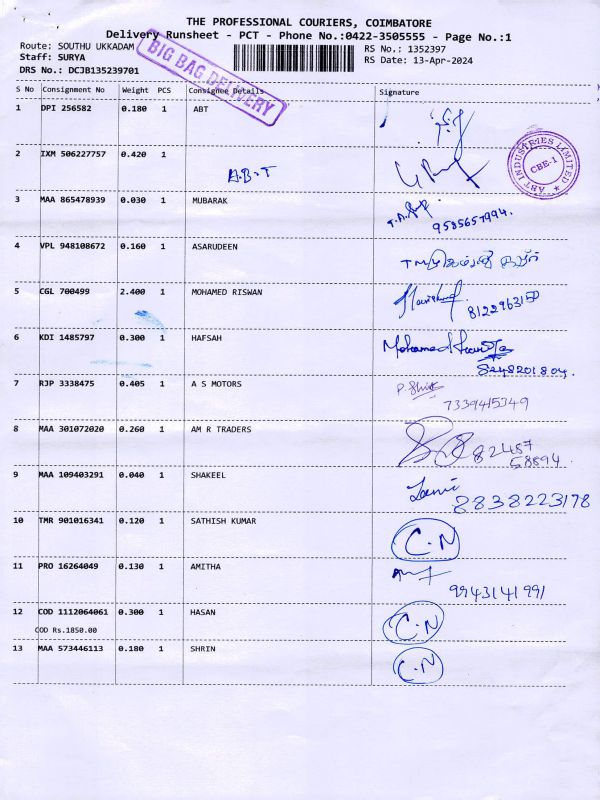 THE PROFESSIONAL COURIERS, COIMBATORE
Delivery Runsheet - PCT - Phone No.:0422-3505555 - Page No.:1
Route: SOUTHU UKKADAM
RS No.: 1352397
Staff: SURYA
RS Date: 13-Apr-2024
DRS No.: DCJB135239701
BIG BAG DELIVERY
S No Consignment No Weight PCS Consignee Details Signature
1 DPI 256582 0.180 1 ABT
2 IXM 506227757 0.420 1 A.B.T
ABT INDUSTRIES LIMITED
CBE-1
3 MAA 865478939 0.030 1 MUBARAK
9585657994.
4 VPL 948108672 0.160 1 ASARUDEEN
5 CGL 700499 2.400 1 MOHAMED RISWAN
8122963150
6 KDI 1485797 0.300 1 HAFSAH
Mohamed
8248201804.
7 RJP 3338475 0.405 1 A S MOTORS
7339415349
8 MAA 301072020 0.260 1 AM R TRADERS
82487
58894
9 MAA 109403291 0.040 1 SHAKEEL
8838223178
10 TMR 901016341 0.120 1 SATHISH KUMAR C.N
11 PRO 16264049 0.130 1 AMITHA
9943141991
12 COD 1112064061 0.300 1 HASAN C.N
COD Rs.1850.00
13 MAA 573446113 0.180 1 SHRIN C.N